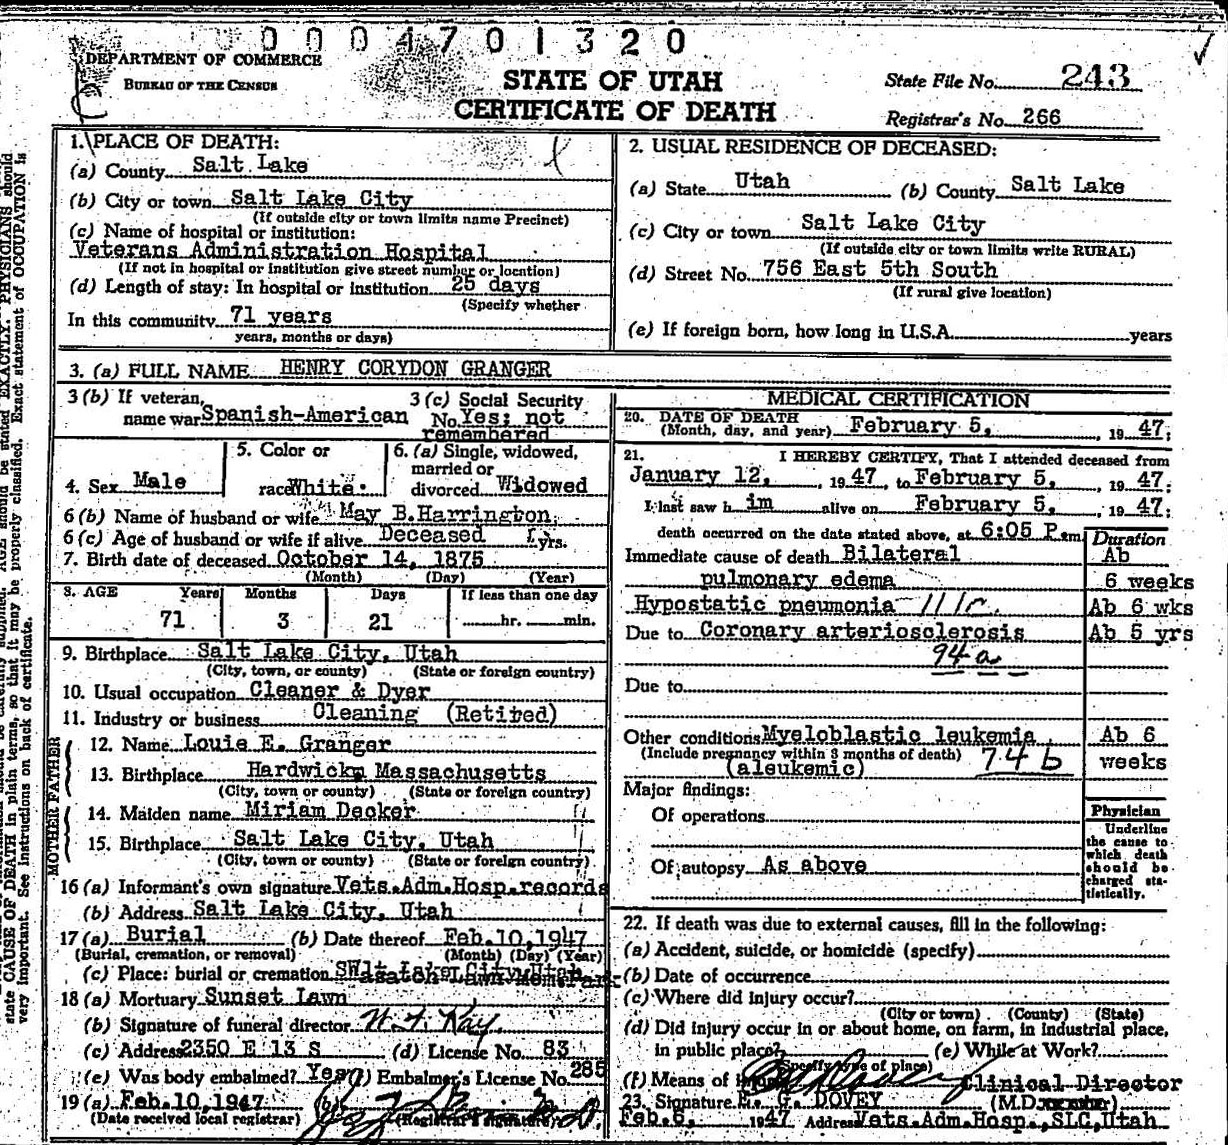 0004701320
DEPARTMENT OF COMMERCE
BUREAU OF THE CENSUS
STATE OF UTAH
CERTIFICATE OF DEATH
State File No. 243
Registrar's No. 266
1. PLACE OF DEATH:
(a) County Salt Lake
(b) City or town Salt Lake City
(If outside city or town limits name Precinct)
(c) Name of hospital or institution:
Veterans Administration Hospital
(If not in hospital or institution give street number or location)
(d) Length of stay: In hospital or institution 25 days
(Specify whether
In this community 71 years
years, months or days)
2. USUAL RESIDENCE OF DECEASED:
(a) State Utah (b) County Salt Lake
(c) City or town Salt Lake City
(If outside city or town limits write RURAL)
(d) Street No. 756 East 5th South
(If rural give location)
(e) If foreign born, how long in U.S.A. years
3. (a) FULL NAME HENRY CORYDON GRANGER
3 (b) If veteran, name war Spanish-American
3 (c) Social Security No. Yes; not remembered
4. Sex Male
5. Color or race White
6. (a) Single, widowed, married or divorced Widowed
6 (b) Name of husband or wife May B.Harrington
6 (c) Age of husband or wife if alive Deceased yrs.
7. Birth date of deceased October 14, 1875
(Month) (Day) (Year)
8. AGE Years Months Days If less than one day
71 3 21 hr. min.
9. Birthplace Salt Lake City, Utah
(City, town, or county) (State or foreign country)
10. Usual occupation Cleaner & Dyer
11. Industry or business Cleaning (Retired)
FATHER
12. Name Louie E. Granger
13. Birthplace Hardwick, Massachusetts
(City, town or county) (State or foreign country)
MOTHER
14. Maiden name Miriam Decker
15. Birthplace Salt Lake City, Utah
(City, town or county) (State or foreign country)
16 (a) Informant's own signature Vets.Adm.Hosp.records
(b) Address Salt Lake City, Utah
17 (a) Burial (b) Date thereof Feb.10,1947
(Burial, cremation, or removal) (Month) (Day) (Year)
(c) Place: burial or cremation
18 (a) Mortuary Sunset Lawn
(b) Signature of funeral director W. F. Kay.
(c) Address 2350 E 13 S (d) License No. 83
(e) Was body embalmed? Yes (f) Embalmer's License No. 285
19 (a) Feb.10,1947 (b)
(Date received local registrar) (Registrar's signature)
MEDICAL CERTIFICATION
20. DATE OF DEATH
(Month, day, and year) February 5, 19 47;
21. I HEREBY CERTIFY, That I attended deceased from
January 12, 19 47 to February 5, 19 47;
I last saw h im alive on February 5, 19 47;
death occurred on the date stated above, at 6:05 P.m.
Duration
Immediate cause of death Bilateral Ab
pulmonary edema 6 weeks
Hypostatic pneumonia Ab 6 wks
Due to Coronary arteriosclerosis Ab 5 yrs
94a
Due to
Other conditions Myeloblastic leukemia Ab 6
(Include pregnancy within 3 months of death)
(aleukemic) 74b weeks
Major findings:
Of operations
Of autopsy As above
Physician
Underline the cause to which death should be charged statistically.
22. If death was due to external causes, fill in the following:
(a) Accident, suicide, or homicide (specify)
(b) Date of occurrence
(c) Where did injury occur?
(City or town) (County) (State)
(d) Did injury occur in or about home, on farm, in industrial place,
in public place? (e) While at Work?
(Specify type of place)
(f) Means of Clinical Director
23. Signature G. DOVEY (M.D.
Feb.6, 1947 Address Vets.Adm.Hosp.,SLC,Utah